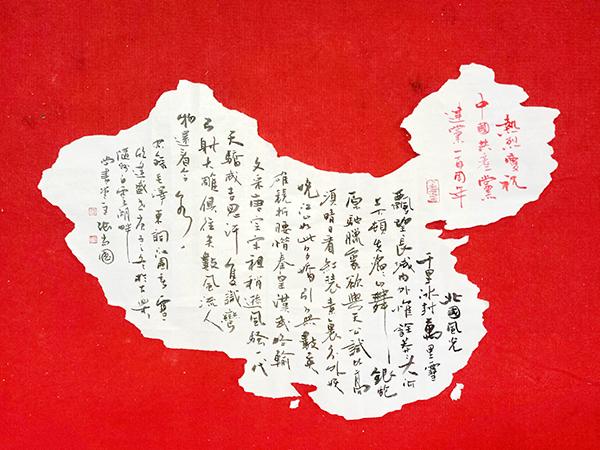 熱烈慶祝
中國共產黨
建黨一百周年
北國風光
千里冰封萬里雪
飄望長城內外惟餘莽莽大河
上下頓失滔滔山舞銀蛇
原馳臘象欲與天公試比高
須晴日看紅裝素裹分外妖
嬈江山如此多嬌引無數英
雄競折腰惜秦皇漢武略輸
文采唐宗宋祖稍遜風騷一代
天驕成吉思汗隻識彎
弓射大雕俱往矣數風流人
物還看今朝
毛澤東詞沁園春雪
隨州白雲湖畔